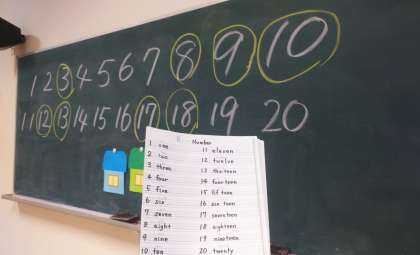 1 2 3 4 5 6 7 8 9 10
11 12 13 14 15 16 17 18 19 20
Number
1 one
2 two
3 three
4 four
5 five
6 six
7 seven
8 eight
9 nine
10 ten
11 eleven
12 twelve
13 thirteen
14 fourteen
15 fifteen
16 sixteen
17 seventeen
18 eighteen
19 nineteen
20 twenty